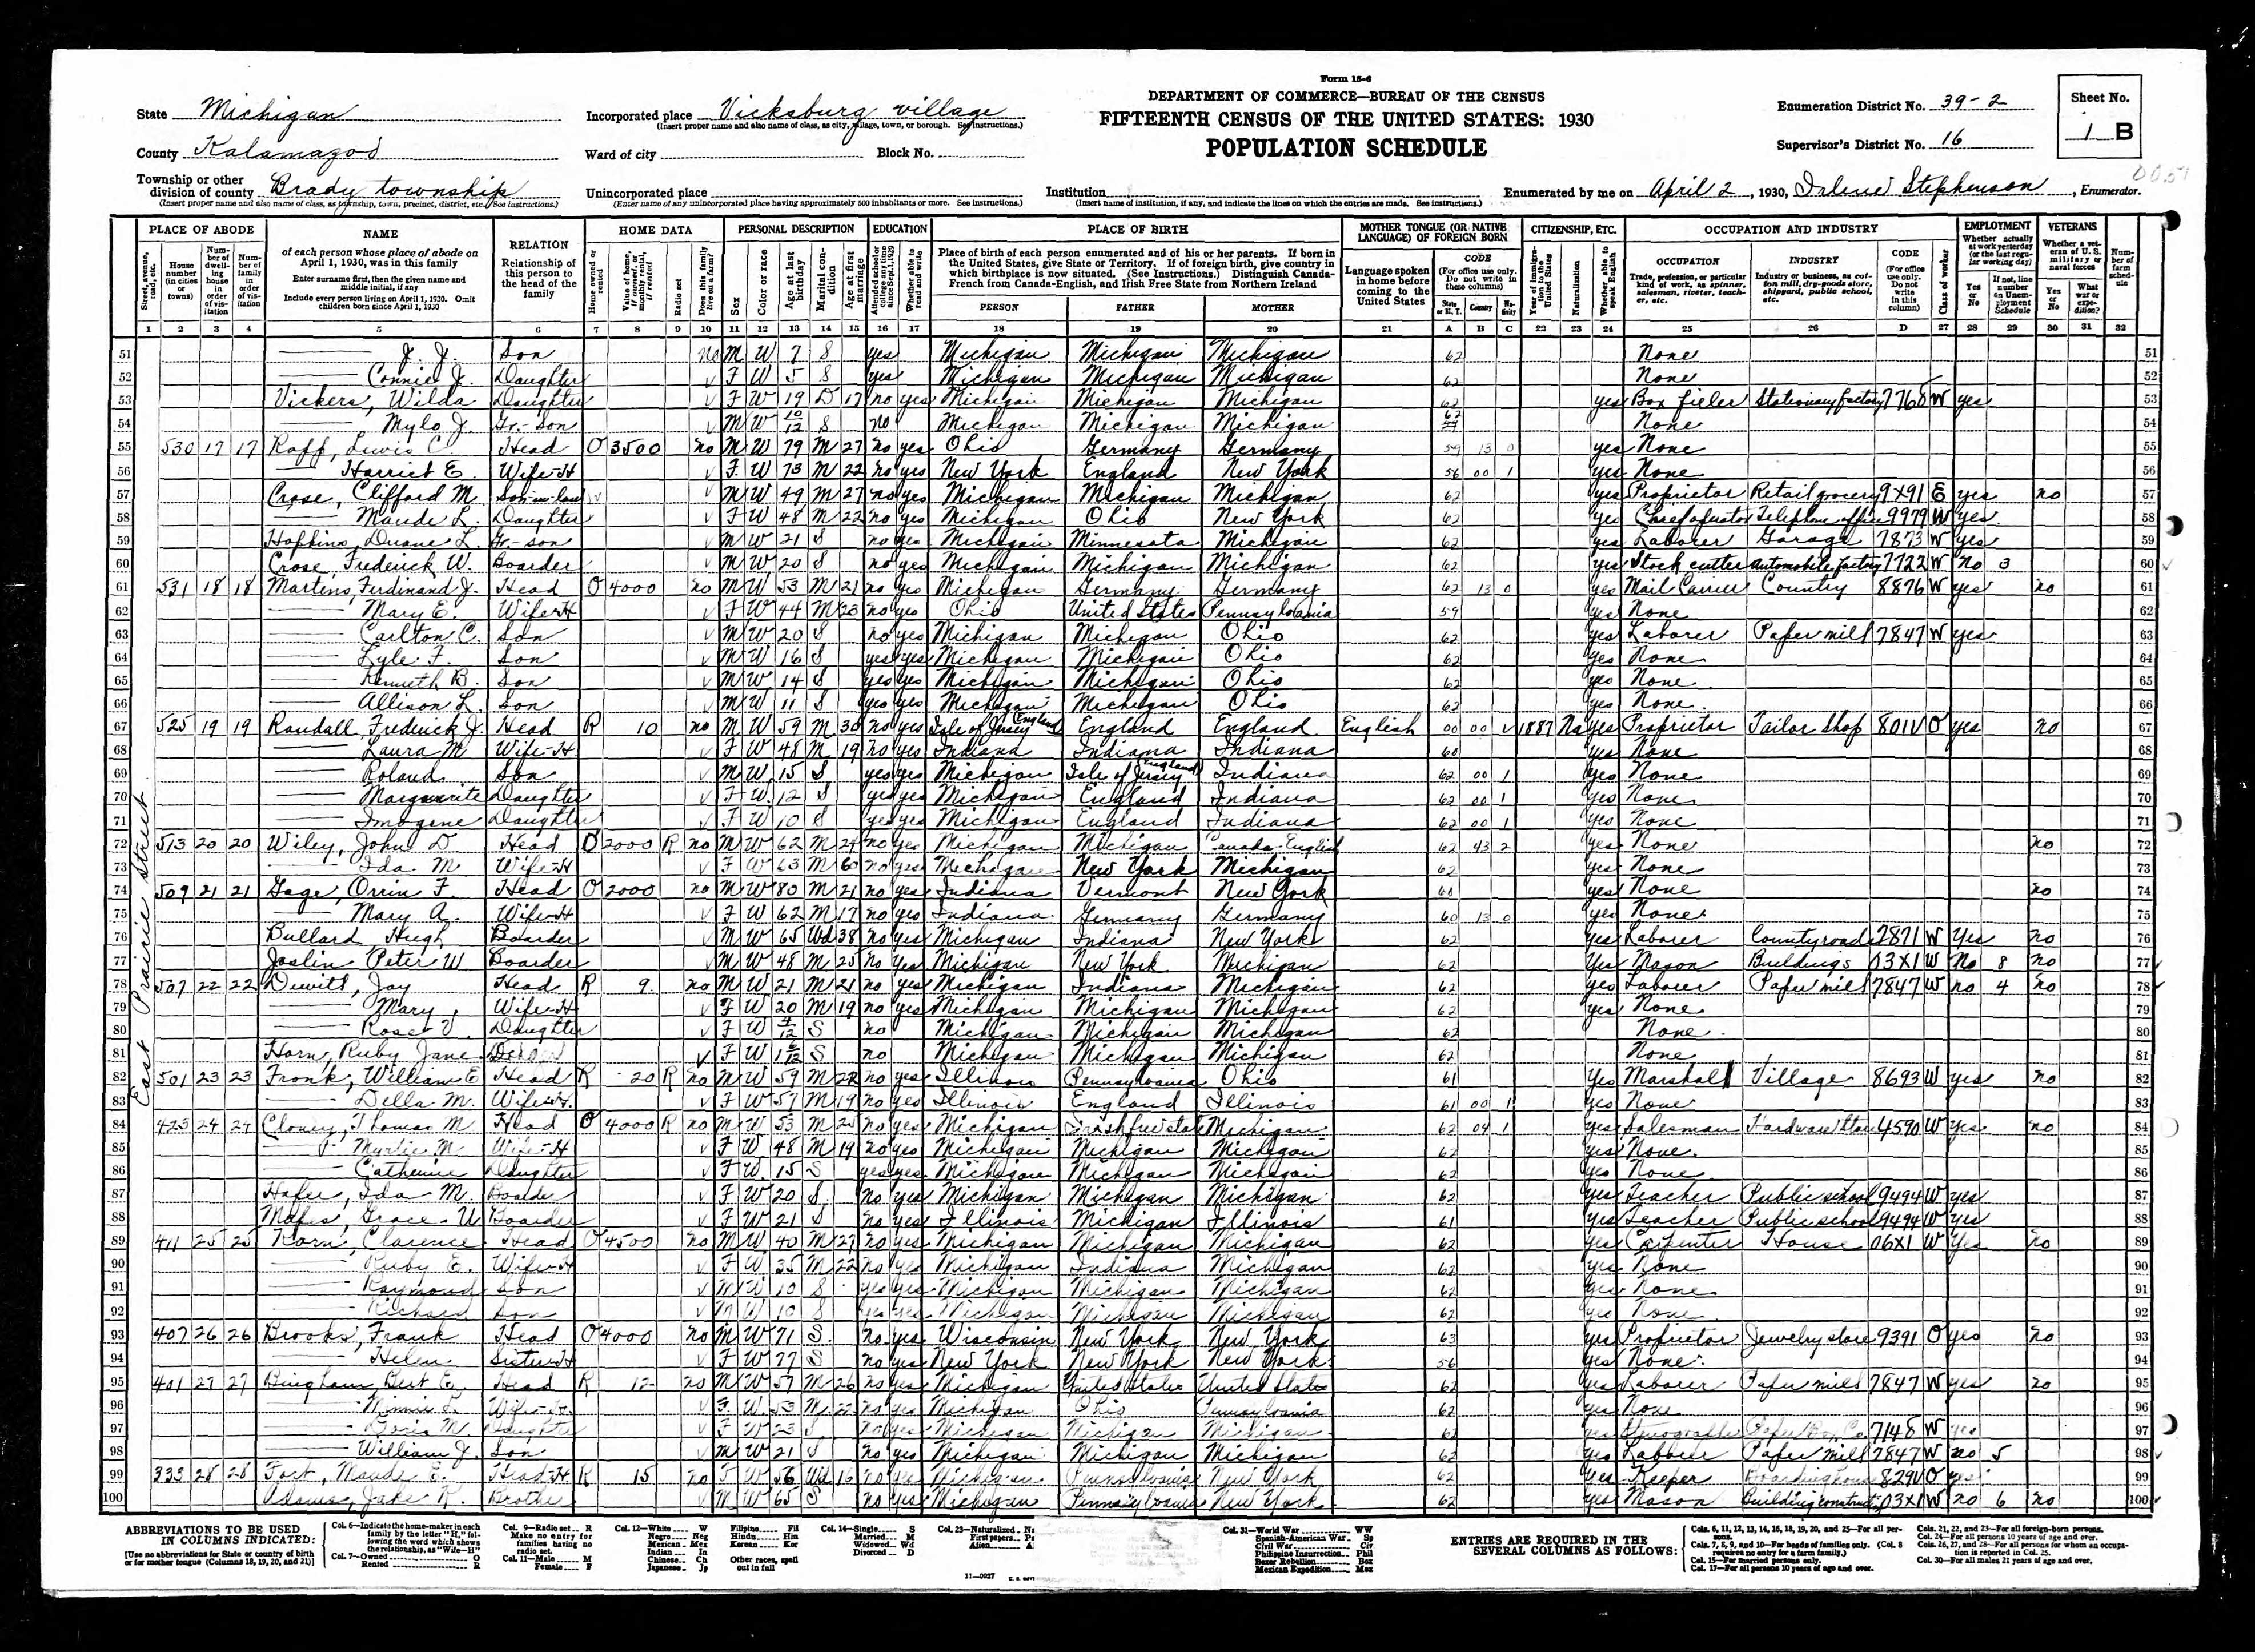 Form 15-6
State Michigan
County Kalamazoo
Township or other division of county Brady township
(Insert proper name and also name of class, as township, town, precinct, district, etc. See instructions.)
Incorporated place Vicksburg village
(Insert proper name and also name of class, as city, village, town, or borough. See instructions.)
Ward of city Block No.
Unincorporated place
(Enter name of any unincorporated place having approximately 500 inhabitants or more. See instructions.)
DEPARTMENT OF COMMERCE—BUREAU OF THE CENSUS
FIFTEENTH CENSUS OF THE UNITED STATES: 1930
POPULATION SCHEDULE
Institution
(Insert name of institution, if any, and indicate the lines on which the entries are made. See instructions.)
Enumeration District No. 39-2
Supervisor's District No. 16
Sheet No.
1 B
Enumerated by me on April 2, 1930, Stephenson, Enumerator.
PLACE OF ABODE NAME RELATION HOME DATA PERSONAL DESCRIPTION EDUCATION PLACE OF BIRTH MOTHER TONGUE (OR NATIVE LANGUAGE) OF FOREIGN BORN CITIZENSHIP, ETC. OCCUPATION AND INDUSTRY EMPLOYMENT VETERANS
PERSON FATHER MOTHER
1 2 3 4 5 6 7 8 9 10 11 12 13 14 15 16 17 18 19 20 21 A B C 22 23 24 25 26 D 27 28 29 30 31 32
East Prairie Street
51 J. J. Son no M W 7 S yes Michigan Michigan Michigan 62 None 51
52 Connie J. Daughter F W 5 S yes Michigan Michigan Michigan 62 None 52
53 Vickers, Wilda Daughter F W 19 D 17 no yes Michigan Michigan Michigan 62 yes Box Stationary factory 7768 W yes 53
54 Mylo J. Gr.-Son M W 10/12 S no Michigan Michigan Michigan 62 None 54
55 530 17 17 Raff, Lewis C. Head O 3500 no M W 79 M 27 no yes Ohio Germany Germany 59 13 0 yes None 55
56 Harriet E. Wife-H F W 73 M 22 no yes New York England New York 56 00 1 yes None 56
57 Crose, Clifford M. Son-in-law M W 49 M 27 no yes Michigan Michigan Michigan 62 yes Proprietor Retail grocery 9X91 E yes no 57
58 Maude L. Daughter F W 48 M 22 no yes Michigan Ohio New York 62 yes Telephone office 9979 W yes 58
59 Hopkins, Duane L. Gr-son M W 21 S no yes Michigan Minnesota Michigan 62 yes Laborer Garage 7873 W yes 59
60 Crose, Frederick W. Boarder M W 20 S no yes Michigan Michigan Michigan 62 yes Stock cutter Automobile factory 7722 W no 3 60
61 531 18 18 Martens, Ferdinand J. Head O 4000 no M W 53 M 21 no yes Michigan Germany Germany 62 13 0 yes Mail Carrier Country 8876 W yes no 61
62 Mary E. Wife-H F W 44 M 23 no yes Ohio United States Pennsylvania 59 yes None 62
63 Carlton C. Son M W 20 S no yes Michigan Michigan Ohio 62 yes Laborer Paper mill 7847 W yes 63
64 Lyle F. Son M W 16 S yes yes Michigan Michigan Ohio 62 yes None 64
65 Kenneth B. Son M W 14 S yes yes Michigan Michigan Ohio 62 yes None 65
66 Allison L. Son M W 11 S yes yes Michigan Michigan Ohio 62 yes None 66
67 525 19 19 Randall, Frederick J. Head R 10 no M W 59 M 30 no yes Isle of Jersey England England England English 00 00 V 1887 Na yes Proprietor Tailor Shop 801V O yes no 67
68 Laura M. Wife-H F W 48 M 19 no yes Indiana Indiana Indiana 60 yes None 68
69 Roland Son M W 15 S yes yes Michigan Isle of Jersey England Indiana 62 00 1 yes None 69
70 Marguerite Daughter F W 12 S yes yes Michigan England Indiana 62 00 1 yes None 70
71 Imogene Daughter F W 10 S yes yes Michigan England Indiana 62 00 1 yes None 71
72 513 20 20 Wiley, John D Head O 2000 R no M W 62 M 24 no yes Michigan Michigan Canada-English 62 43 2 yes None no 72
73 Ida M. Wife-H F W 63 M 60 no yes Michigan New York Michigan 62 yes None 73
74 509 21 21 Gage, Orrin F. Head O 2000 no M W 80 M 21 no yes Indiana Vermont New York 60 yes None no 74
75 Mary A. Wife-H F W 62 M 17 no yes Indiana Germany Germany 60 13 0 yes None 75
76 Bullard Hugh Boarder M W 65 Wd 38 no yes Michigan Indiana New York 62 yes Laborer County roads 7871 W yes no 76
77 Joslin Peter W Boarder M W 48 M 25 no yes Michigan New York Michigan 62 yes Mason Buildings 03X1 W no 8 no 77
78 507 22 22 Dewitt, Jay Head R 9 no M W 21 M 21 no yes Michigan Indiana Michigan 62 yes Laborer Paper mill 7847 W no 4 no 78
79 Mary Wife-H F W 20 M 19 no yes Michigan Michigan Michigan 62 yes None 79
80 Rose V. Daughter F W 4/12 S no Michigan Michigan Michigan 62 None 80
81 Horn, Ruby Jane F W S no Michigan Michigan Michigan 62 None 81
82 501 23 23 Fronk, William E Head R 20 R no M W 59 M 22 no yes Illinois Pennsylvania Ohio 61 yes Marshall Village 8693 W yes no 82
83 Della M. Wife-H F W 57 M 19 no yes Illinois England Illinois 61 00 1 yes None 83
84 423 24 24 Cloney, Thomas M Head O 4000 R no M W 53 M 25 no yes Michigan Irish free state Michigan 62 04 1 yes Salesman Hardware Store 4590 W yes no 84
85 Myrtle M Wife-H F W 48 M 19 no yes Michigan Michigan Michigan 62 yes None 85
86 Catherine Daughter F W 15 S yes yes Michigan Michigan Michigan 62 yes None 86
87 Hafer, Ida M. Boarder F W 20 S no yes Michigan Michigan Michigan 62 yes Teacher Public school 9494 W yes 87
88 Grace U Boarder F W 21 S no yes Illinois Michigan Illinois 61 yes Teacher Public school 9494 W yes 88
89 411 25 25 Clarence Head O 4500 no M W 40 M 27 no yes Michigan Michigan Michigan 62 yes Carpenter House 06X1 W yes no 89
90 Ruby E. Wife-H F W 35 M 22 no yes Michigan Indiana Michigan 62 yes None 90
91 Raymond Son M W 10 S yes yes Michigan Michigan Michigan 62 yes None 91
92 Richard Son M W 10 S yes yes Michigan Michigan Michigan 62 yes None 92
93 407 26 26 Brooks, Frank Head O 4000 no M W 71 S no yes Wisconsin New York New York 63 yes Proprietor Jewelry store 9391 O yes no 93
94 Helen Sister-H F W 77 S no yes New York New York New York 56 yes None 94
95 401 27 27 Bingham, Bert E. Head R 12 no M W 57 M 26 no yes Michigan United States United States 62 yes Laborer Paper mill 7847 W yes no 95
96 Minnie L. Wife-H F W 53 M 22 no yes Michigan Ohio Pennsylvania 62 yes None 96
97 Doris M Daughter F W 23 S no yes Michigan Michigan Michigan 62 yes Stenographer Paper Box Co. 7148 W yes 97
98 William J. Son M W 21 S no yes Michigan Michigan Michigan 62 yes Laborer Paper mill 7847 W no 5 98
99 333 28 28 Fort, Maude E. Head-H R 15 no F W 56 Wd 16 no yes Michigan Pennsylvania New York 62 yes Keeper Boarding house 829V O yes 99
100 Adams, Jake R. Brother M W 65 S no yes Michigan Pennsylvania New York 62 yes Mason Building construction 03X1 W no 6 no 100
ABBREVIATIONS TO BE USED IN COLUMNS INDICATED:
[Use no abbreviations for State or country of birth or for mother tongue (Columns 18, 19, 20, and 21)]
Col. 6—Indicate the home-maker in each family by the letter "H," following the word which shows the relationship, as "Wife—H"
Col. 7—Owned O Rented R
Col. 9—Radio set R Make no entry for families having no radio set.
Col. 11—Male M Female F
Col. 12—White W Negro Neg Mexican Mex Indian In Chinese Ch Japanese Jp Filipino Fil Hindu Hin Korean Kor Other races, spell out in full
Col. 14—Single S Married M Widowed Wd Divorced D
Col. 23—Naturalized Na First papers Pa Alien A
11—0927
Col. 31—World War WW Spanish-American War Sp Civil War Civ Philippine Insurrection Phil Boxer Rebellion Box Mexican Expedition Mex
ENTRIES ARE REQUIRED IN THE SEVERAL COLUMNS AS FOLLOWS:
Cols. 6, 11, 12, 13, 14, 16, 18, 19, 20, and 25—For all persons.
Cols. 7, 8, 9, and 10—For heads of families only. (Col. 8 requires no entry for a farm family.)
Col. 15—For married persons only.
Col. 17—For all persons 10 years of age and over.
Cols. 21, 22, and 23—For all foreign-born persons.
Col. 24—For all persons 10 years of age and over.
Cols. 26, 27, and 28—For all persons for whom an occupation is reported in Col. 25.
Col. 30—For all males 21 years of age and over.